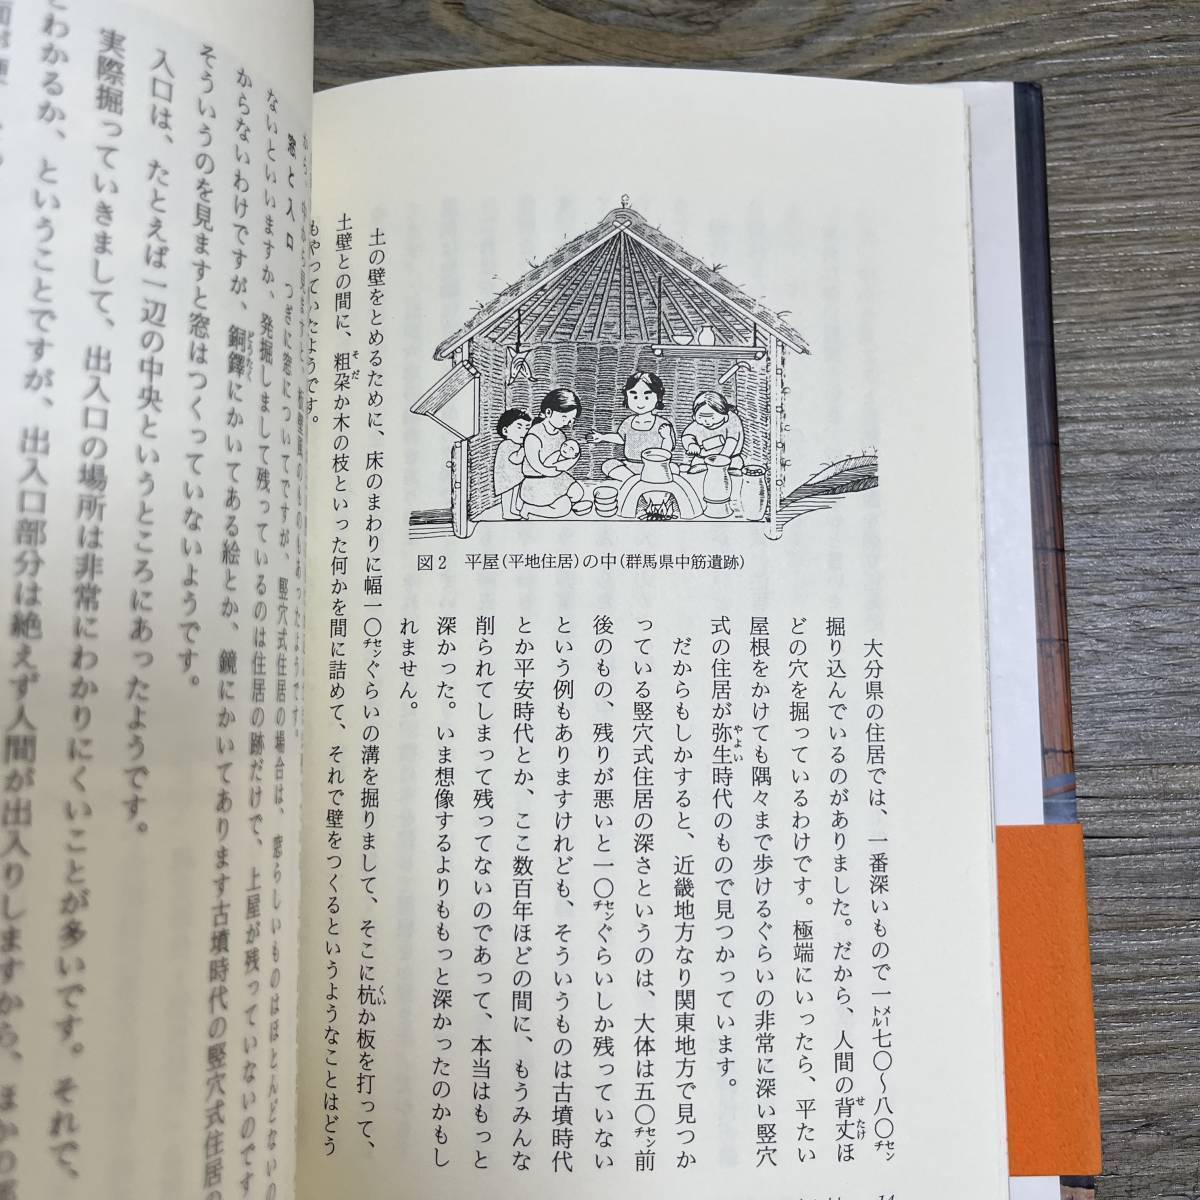 図2 平屋(平地住居)の中(群馬県中筋遺跡)
大分県の住居では、一番深いもので一メートル七〇〜八〇センチ
掘り込んでいるのがありました。だから、人間の背丈ほ
どの穴を掘っているわけです。極端にいったら、平たい
屋根をかけても隅々まで歩けるぐらいの非常に深い竪穴
式の住居が弥生時代のもので見つかっています。
だからもしかすると、近畿地方なり関東地方で見つか
っている竪穴式住居の深さというのは、大体は五〇センチ前
後のもの、残りが悪いと一〇センチぐらいしか残っていない
という例もありますけれども、そういうものは古墳時代
とか平安時代とか、ここ数百年ほどの間に、もうみんな
削られてしまって残ってないのであって、本当はもっと
深かった。いま想像するよりももっと深かったのかもし
れません。
土の壁をとめるために、床のまわりに幅一〇センチぐらいの溝を掘りまして、そこに杭か板を打って、
土壁との間に、粗朶か木の枝といった何かを間に詰めて、それで壁をつくるというようなことはどう
もやっていたようです。
14
見ますと、板壁風のものもあったようです。
窓と入口 つぎに窓についてですが、竪穴式住居の場合は、窓らしいものはほとんどないの
ないといいますか、発掘しまして残っているのは住居の跡だけで、上屋が残っていないのです
からないわけですが、銅鐸にかいてある絵とか、鏡にかいてあります古墳時代の竪穴式住居の
そういうのを見ますと窓はつくっていないようです。
入口は、たとえば一辺の中央というところにあったようです。
実際掘っていきまして、出入口の場所は非常にわかりにくいことが多いです。それで、
とわかるか、ということですが、出入口部分は絶えず人間が出入りしますから、ほかの